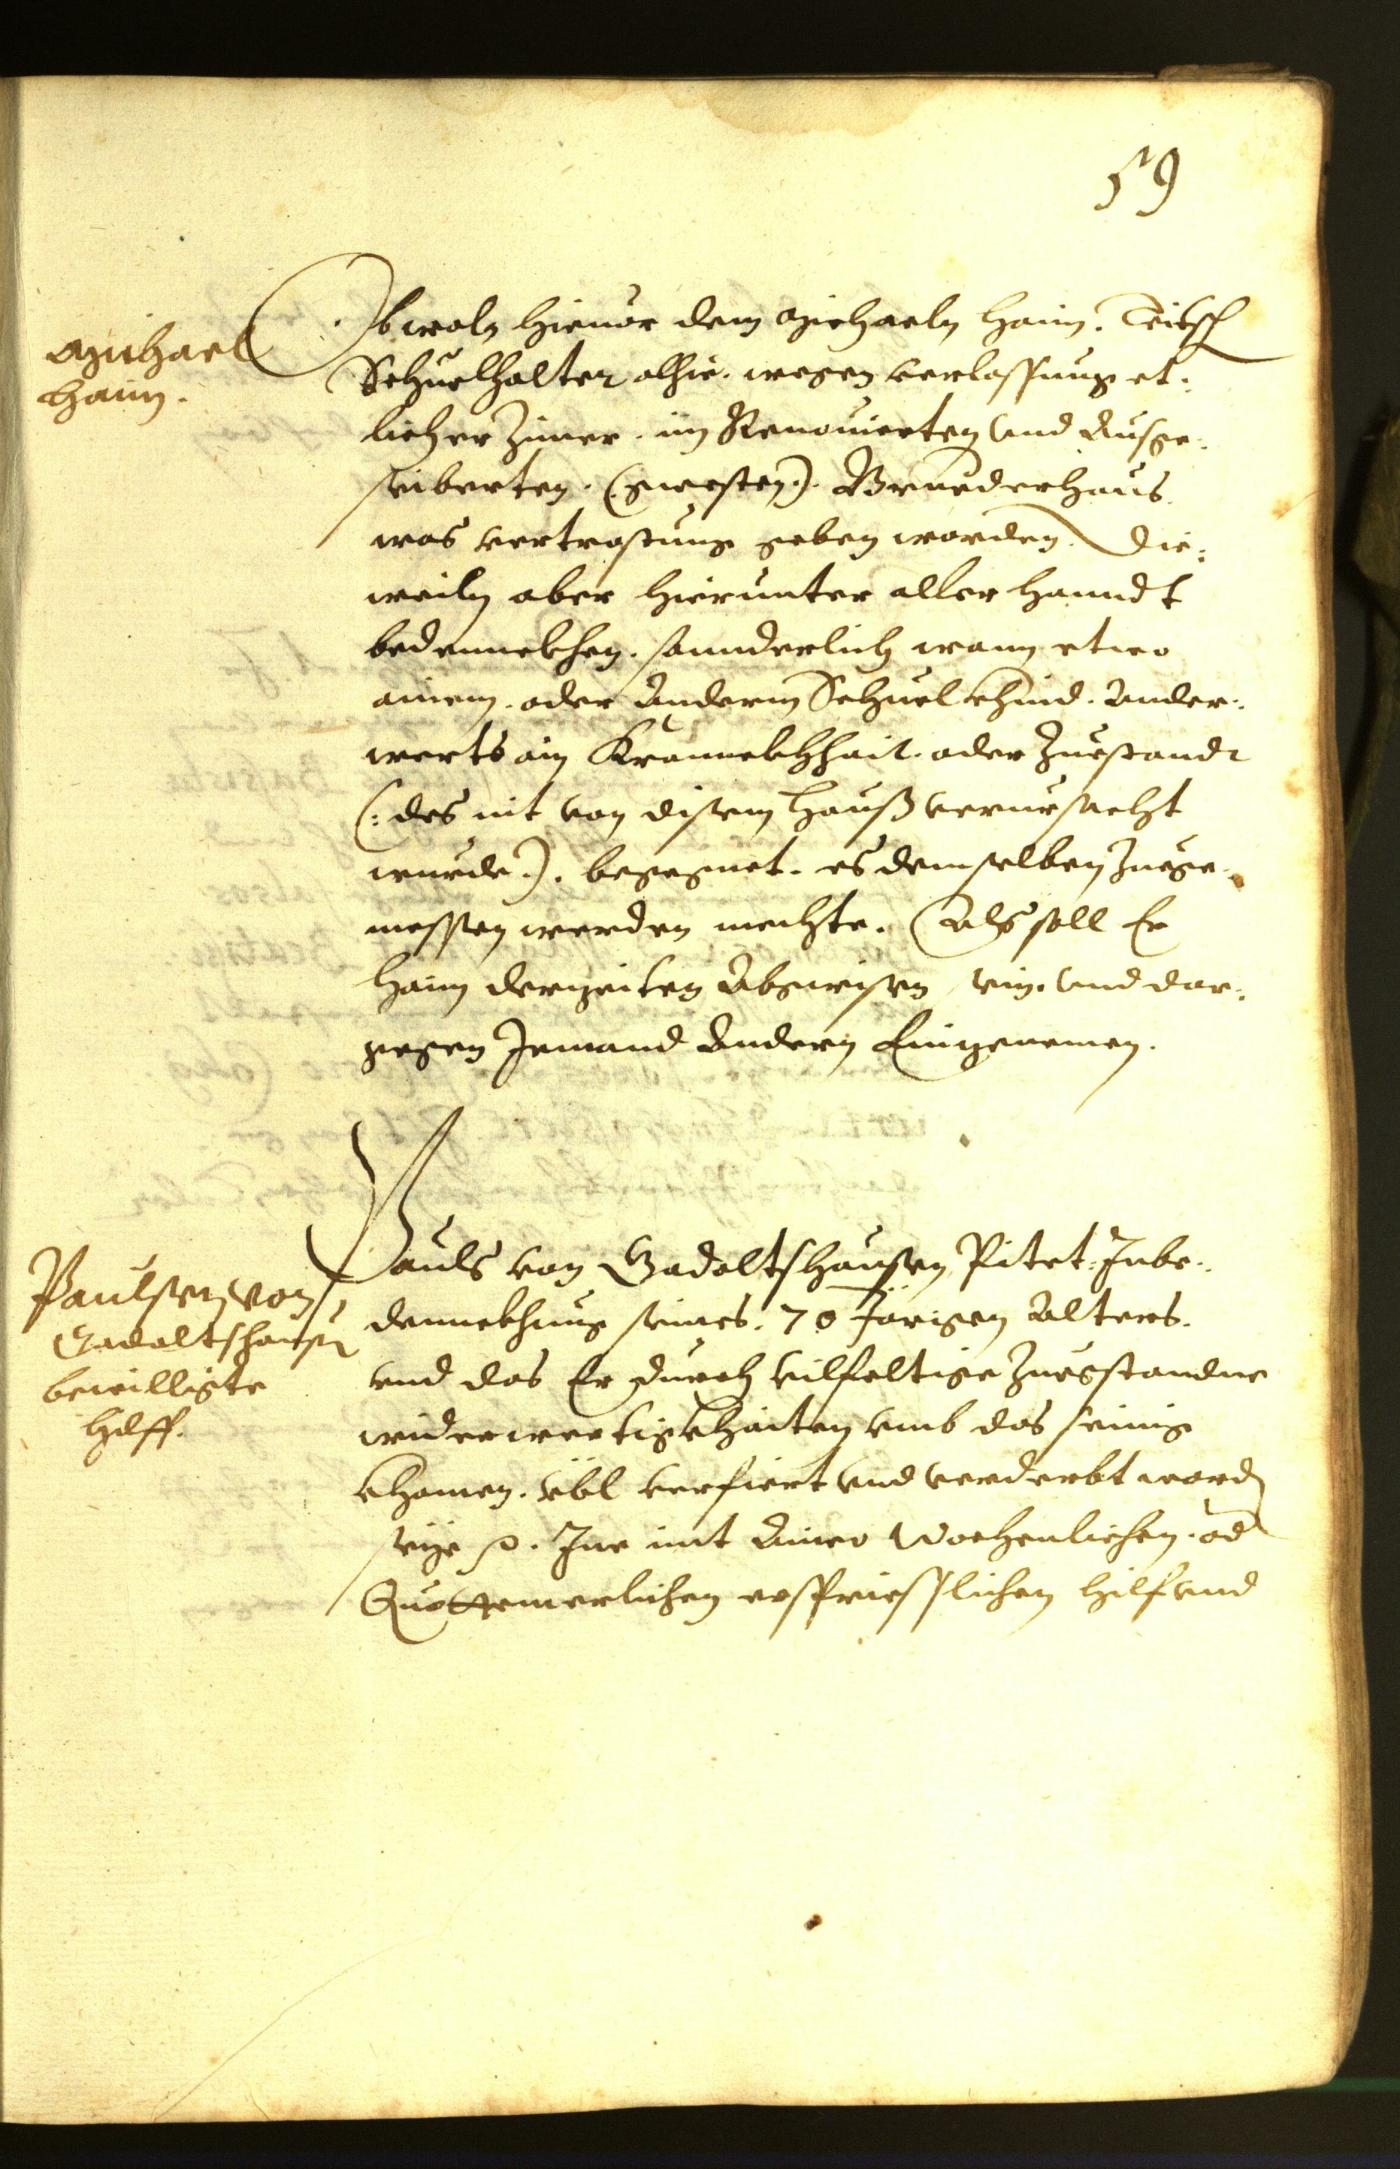 59
Michael
Haim.
Obwoln hieuor dem Michaeln Haim. Teitsch
Schuelhalter alhie. wegen verlassung et:
licher Zimer. im Renouierten vnd Ausge:
seiberten. (:gwesten:). Bruederhaus
was vertrostung geben worden. Die:
weiln aber hierunter aller hanndt
bedennckhen. sonnderlich wann etwo
ainem. oder Anderm Schuel khind. Ander:
werts ain Krannckhhait. oder Zuestandt
(:des nit von disem Hauß verursacht
wurde:). begegnet. es demselben Zuege:
messen werden mechte. Als soll Er
Haim derzeiten Abgwisen sein. vnd dar:
gegen Jemand Andern Eingenomen.
Paulsen von
Gadoltshausen
bewilligte
hilff.
Pauls von Gadoltshausen Pitet. Inbe:
dennckhung seines. 70 Järigen Alters.
vnd das Er durch vilfeltige Zuegstandne
widerwertigkhaiten vmb das seinig
khomen. vbl verfiert vnd verderbt word
seye p. Ine mit Ainer Wochenlichen. od
Quottemerlichen ersprießlichen hilf vnd